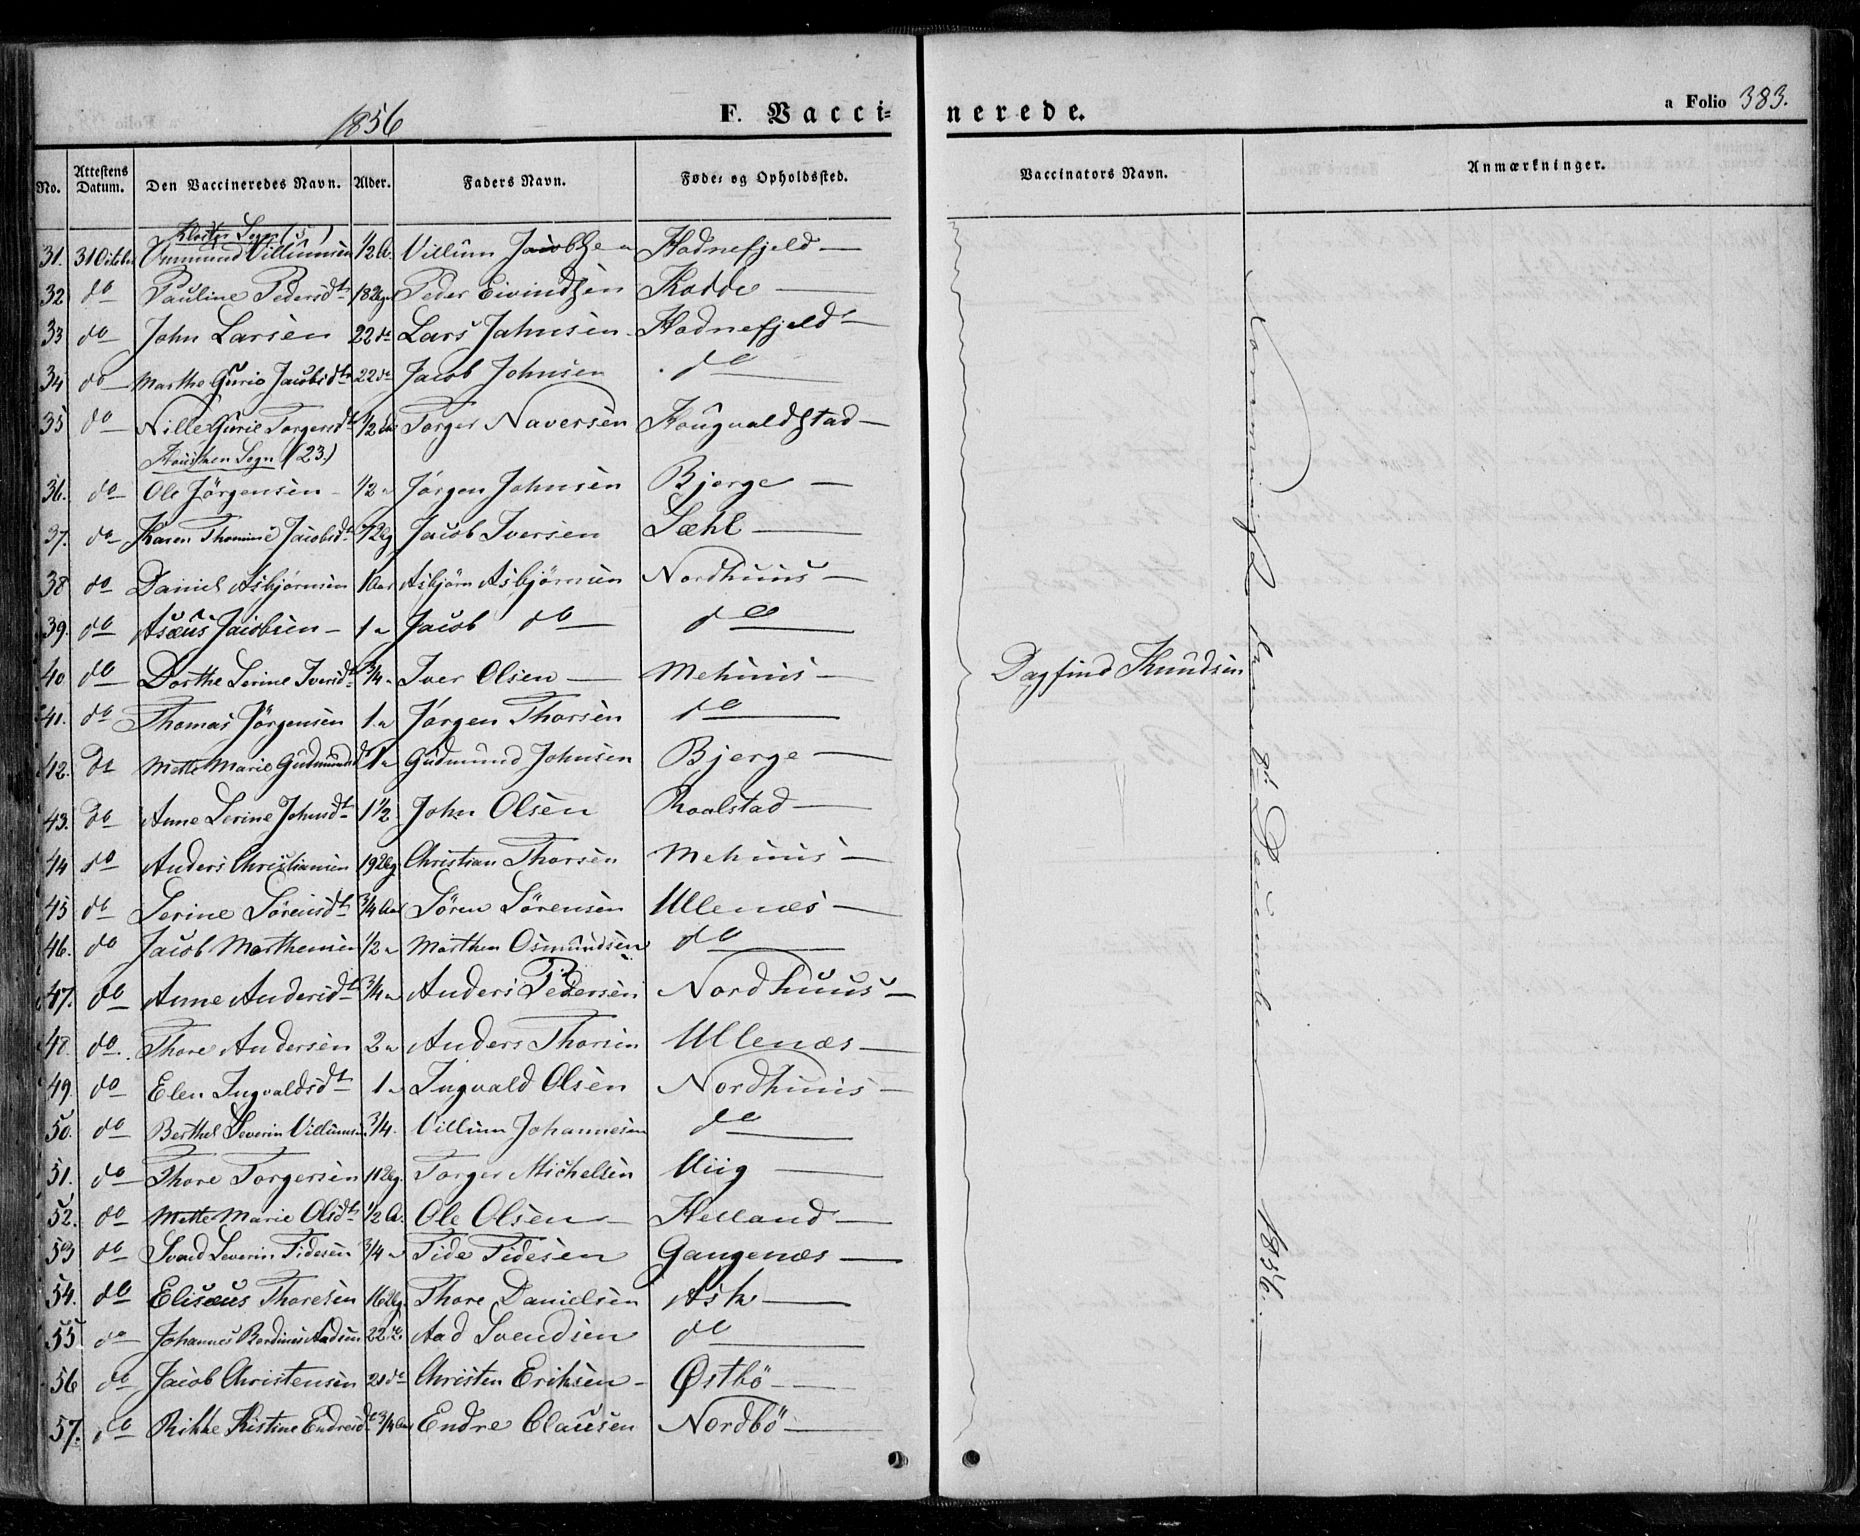 1856 F. Vaccinerede. a Folio 383.
No. Attestens Datum. Den Vaccineredes Navn. Alder. Faders Navn. Føde= og Opholdssted. Vaccinators Navn. Anmærkninger.
Kloster Sogn (5)
31. 31 Octobr Villumsen 1/2 A. Villum Hodnefjeld —
32 do Pauline Pedersdtr 18 Ug Peder Eivindsen Kodde —
33 do John Larsen 22 do Lars Johnsen Hodnefjeld —
34 do Marthe Gurie Jacobsdtr 22 do Jacob Johnsen do
35 do Nille Gurie Torgersdtr 1/2 Aar Torger Naversen Hougvaldstad —
Housken Sogn (23.)
36. do Ole Jörgensen 1/2 " Jörgen Johnsen Bjerge —
37. do Karen Thomine Jacobsdtr Jacob Iversen Sæhl —
38 do Daniel Asbjørnsen 1 Aar Asbjørn Asbjørnsen Nordhuus —
39. do Asæus Jacobsen — 1 " Jacob do do
40 do Dorthe Serine Iversdtr 3/4 " Iver Olsen — Mehuus — Dagfind Knudsen
41. do Thomas Jörgensen 1 " Jörgen Thorsen do
42. do Mette Marie Gudmundsd 1 " Gudmund Johnsen Bjerge —
43. do Anne Serine Johnsdtr 1 1/2 John Olsen Roalstad —
44 do Anders Christiansen 19 Ug. Christian Thorsen Mehuus —
45 do Serine Sörensdtr 3/4 Aar Sören Sörensen Ullenæs —
46. do Jacob Morthensen 1/2 " Morthen Osmundsen do
47. do Anne Andersdtr 3/4 " Anders Pedersen Nordhuus —
48. do. Thore Andersen 2 " Anders Thorsen Ullenæs —
49. do Elen Ingvaldsdtr 1 " Ingvald Olsen Nordhuus —
50. do Berthel Severin Villumsen 3/4. Villum Johannesen do
51. do Thore Torgersen 11 Ug. Torger Michelsen Viig —
52. do Mette Marie Olsdtr 1/2 A. Ole Olsen — Helland —
53 do Svend Severin Tidesen 3/4 " Tide Tidesen Gangenæs —
54. do Elisæus Thoresen 16 Ug. Thore Danielsen Ask —
55 do Johannes Bardinus Aadsen 22 do Aad Svendsen do
56 do Jacob Christensen 21 do Christen Eriksen — Østbö —
57. do Rikke Kistine Endresdtr 3/4 Aar Endre Clausen Nordbö —
8de December 1856.